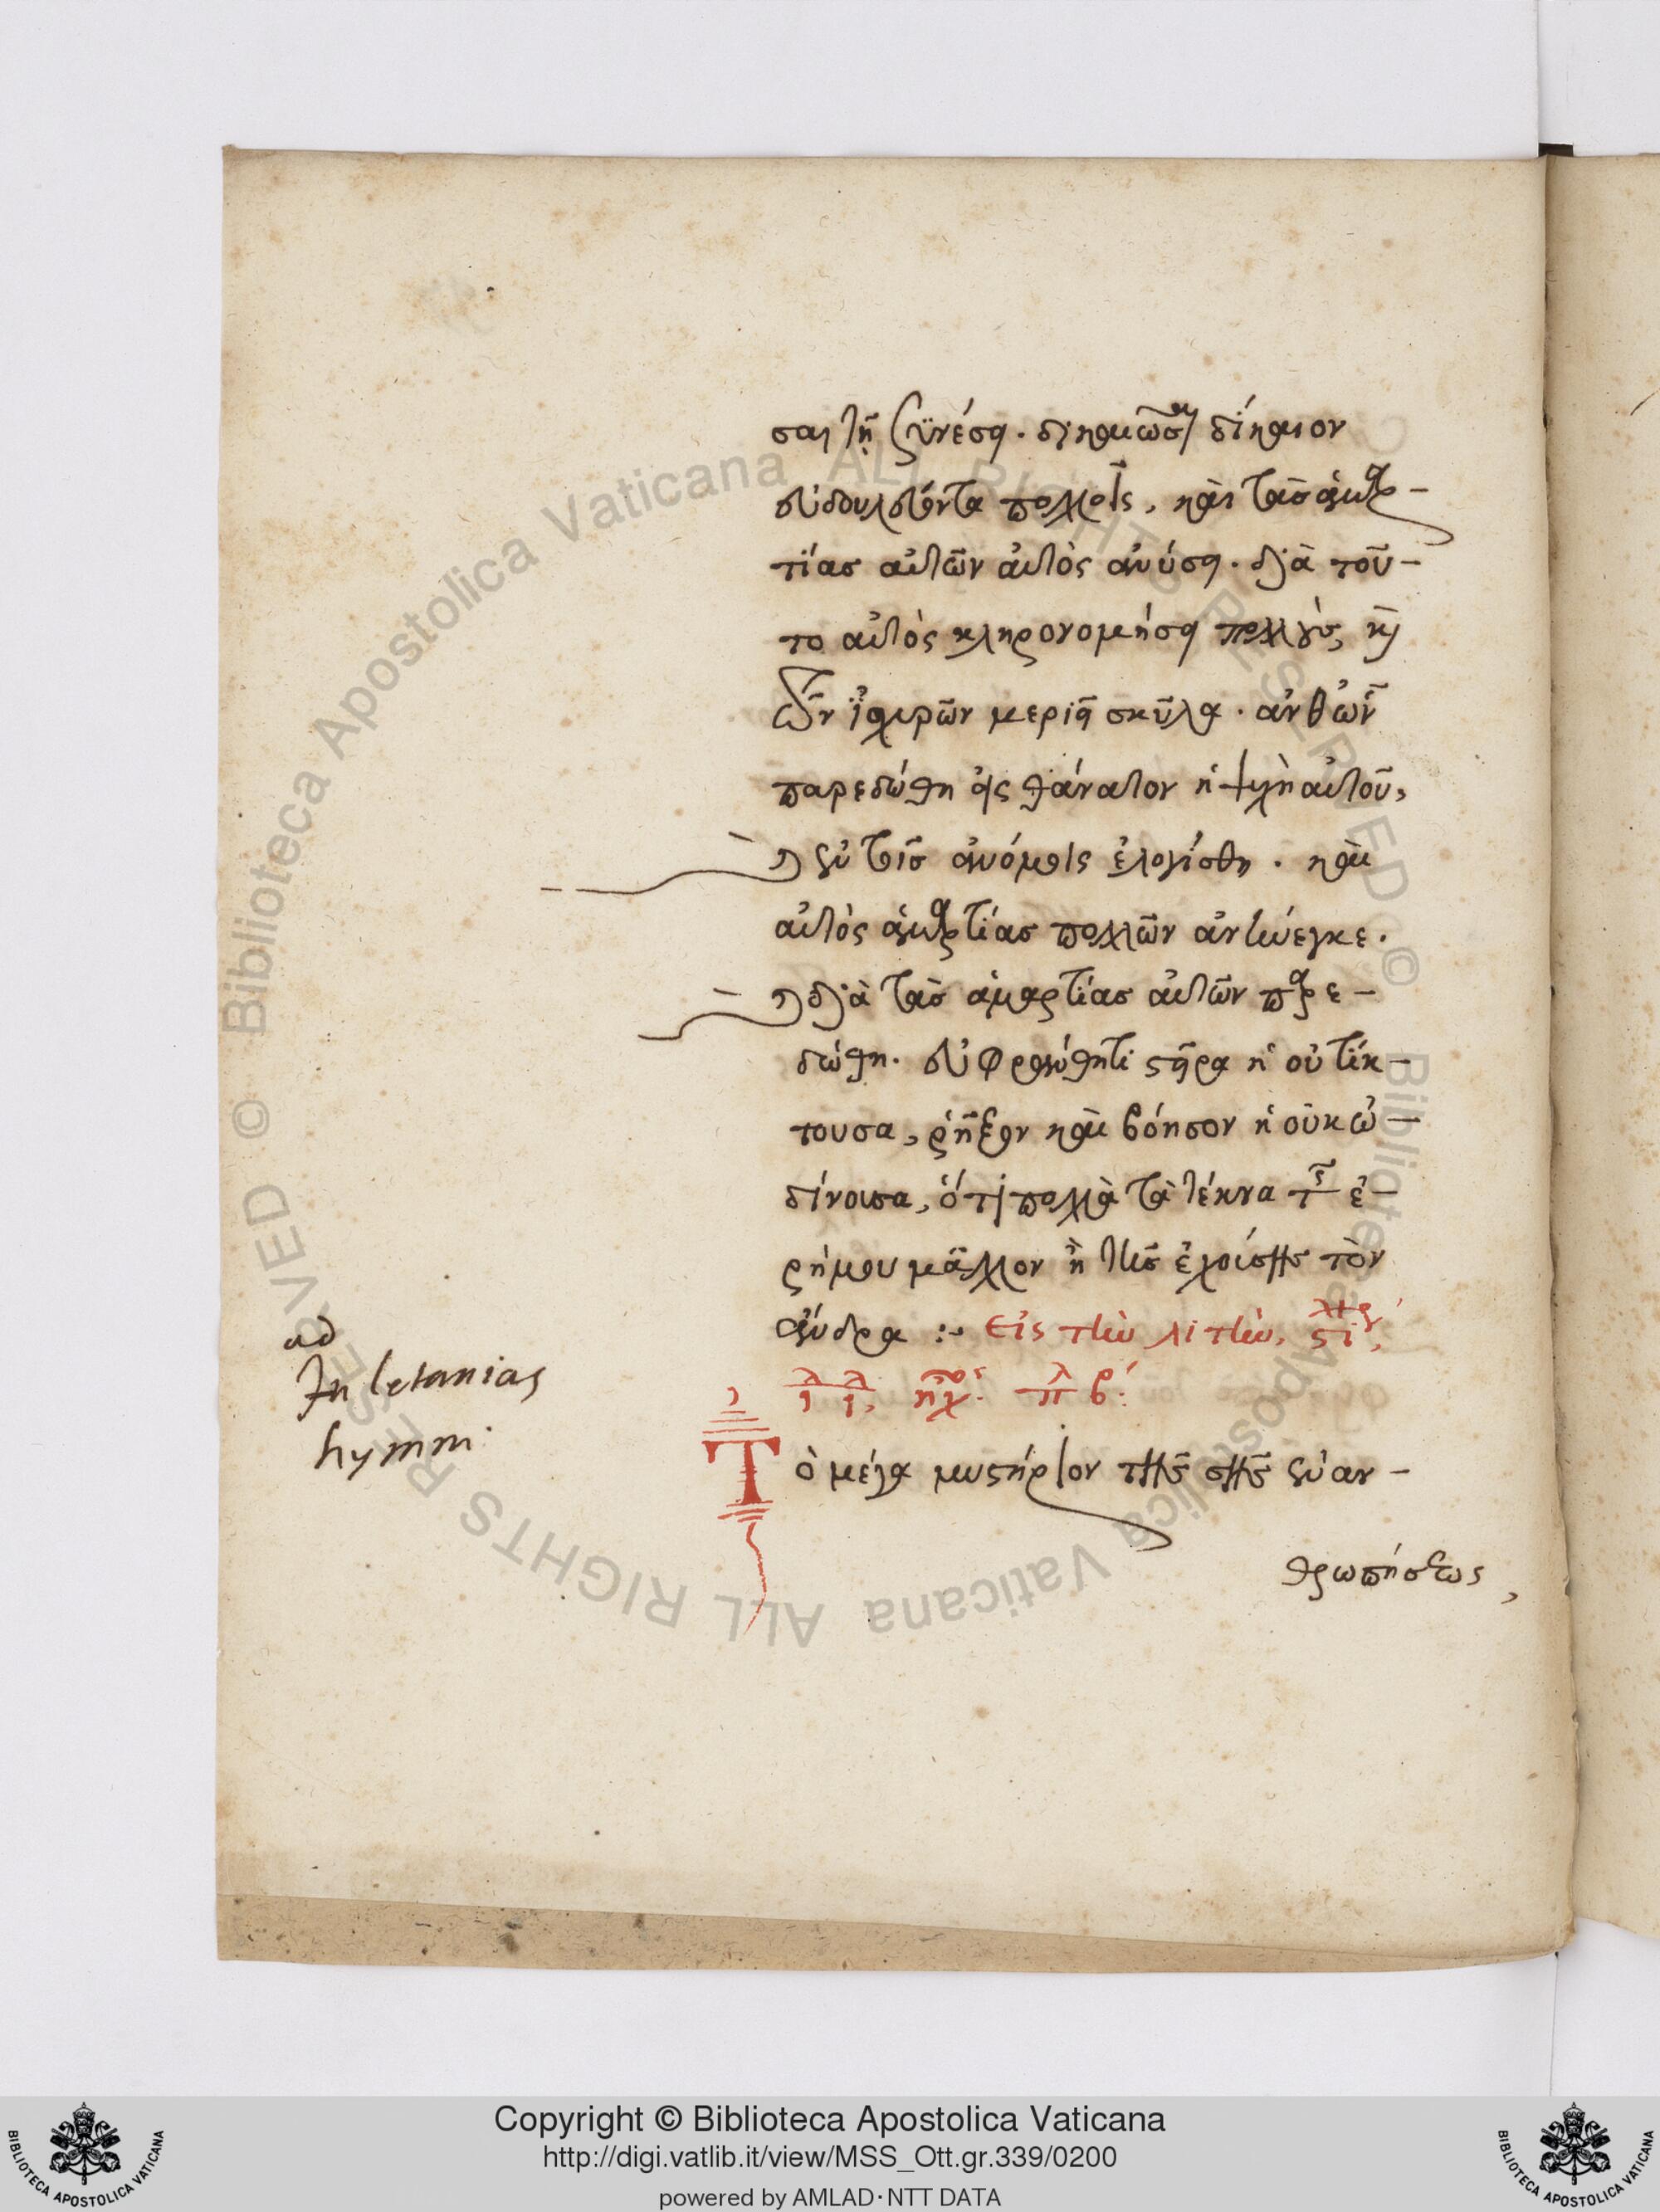 σαι τῇ συνέσει. δικαιῶσαι δίκαιον
εὐδουλεύοντα πολλοῖς, καὶ τὰς ἁμαρ-
τίας αὐτῶν αὐτὸς ἀνοίσει. διὰ τοῦ-
το αὐτὸς κληρονομήσει πολλοὺς, κ̀
τῶν ἰσχυρῶν μεριεῖ σκῦλα. ἀνθ ὧν
παρεδόθη εἰς θάνατον ἡ ψυχὴ αὐτοῦ,
κ̀ ἐν τοῖς ἀνόμοις ἐλογίσθη. καὶ
αὐτὸς ἁμαρτίας πολλῶν ἀνήνεγκε.
κ̀ διὰ τὰς ἁμαρτίας αὐτῶν παρε-
δώθη. εὐφράνθητι στεῖρα ἡ οὐ τίκ-
τουσα, ῥῆξον καὶ βόησον ἡ οὐκ ὠ-
δίνουσα, ὅτι πολλὰ τὰ τέκνα τῆς ἐ-
ρήμου μᾶλλον ἢ τῆς ἐχούσης τὸν
ἄνδρα :~ Εἰς τὴν λιτὴν,
ἦχος πλ β΄.
Τὸ μέγα μυστήριον τῆς σῆς ἐναν-
θρωπήσεως,
ad
In letanias
hymni
Copyright © Biblioteca Apostolica Vaticana
http://digi.vatlib.it/view/MSS_Ott.gr.339/0200
powered by AMLAD·NTT DATA
BIBLIOTECA APOSTOLICA VATICANA
BIBLIOTECA APOSTOLICA VATICANA
Biblioteca Apostolica Vaticana ALL RIGHTS RESERVED ©
Biblioteca Apostolica Vaticana ALL RIGHTS RESERVED ©